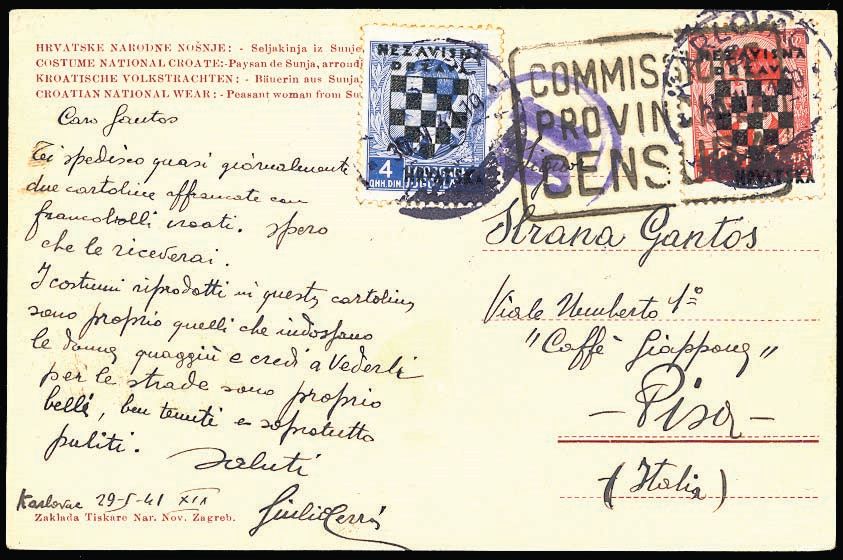 HRVATSKE NARODNE NOŠNJE: - Seljakinja iz Sunje
COSTUME NATIONAL CROATE:-Paysan de Sunja, arrondi
KROATISCHE VOLKSTRACHTEN: - Bäuerin aus Sunja,
CROATIAN NATIONAL WEAR: - Peasant woman from Su
Caro Gantos
Ti spedisco quasi giornalmente
due cartoline affrancate con
francobolli croati. Spero
che le riceverai.
I costumi riprodotti in questa cartolina
sono proprio quelli che indossano
le donne quaggiù e credi a vederli
per le strade sono proprio
belli, ben tenuti e sopratutto
puliti.
Saluti
Karlovac 29-5-41 XIX
Zaklada Tiskare Nar. Nov. Zagreb.
NEZAVISNA
DRŽAVA
4
HRVATSKA
COMMISS
PROVIN
CENS
NEZAVISNA
DRŽAVA
HRVATSKA
Strana Gantos
Viale Umberto 1º
"Caffè Giappone"
- Pisa -
(Italia)